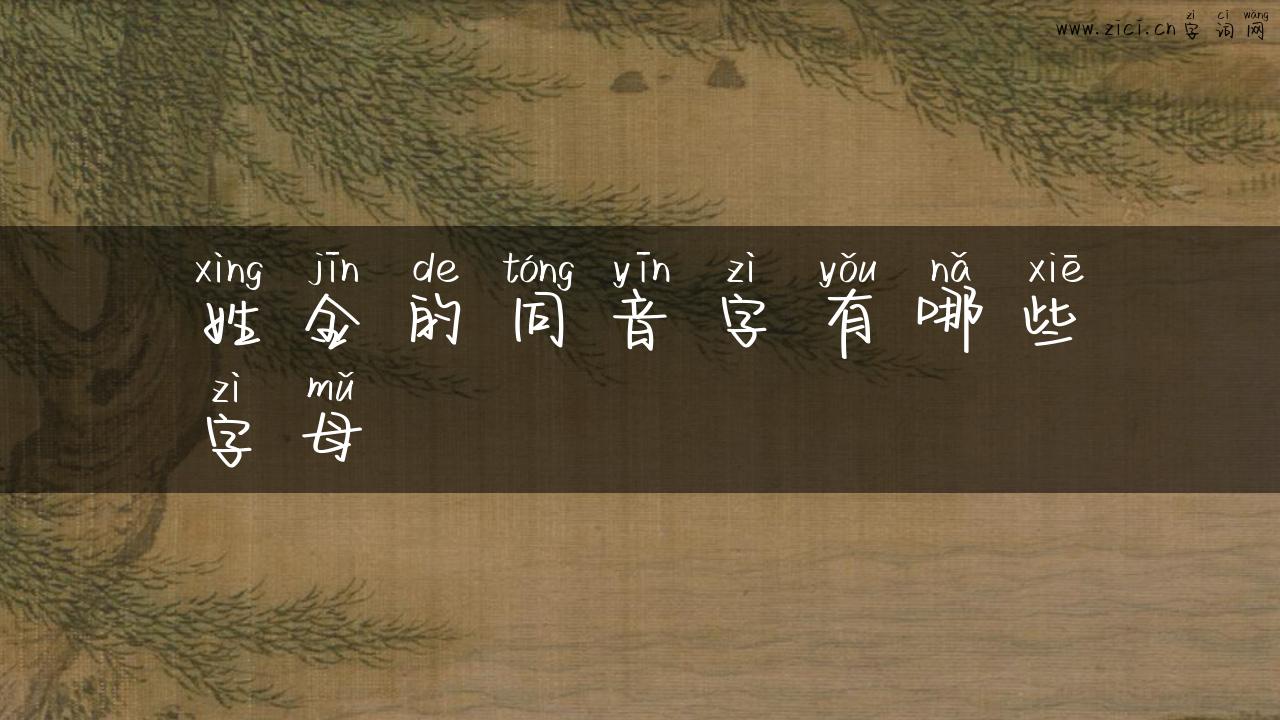 zì cí wǎng
www.zici.cn 字 词 网
xìng jīn de tóng yīn zì yǒu nǎ xiē
姓 金 的 同 音 字 有 哪 些
zì mǔ
字 母